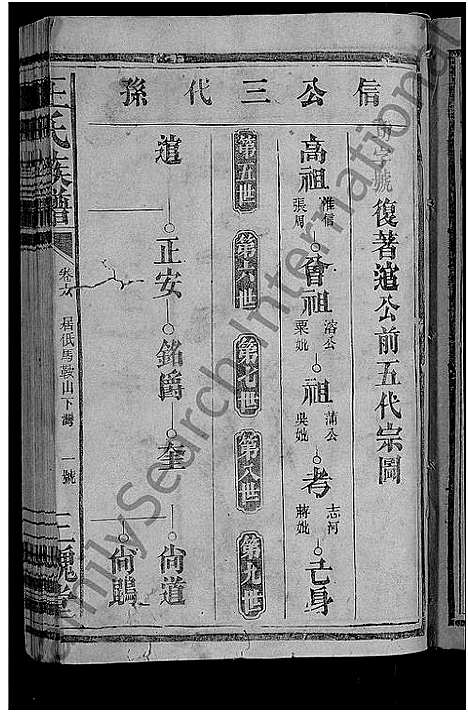 信公三代孫
號復著逭公前五代宗圖
高祖 惟信 張周 曾祖 溶公 粟妣 祖 蒲公 吳妣 考 志河 蔣妣 己身
第五世 第六世 第七世 第八世 第九世
逭 正安 銘爵 奎 尚道
尚鵾
王氏族譜
卷 居低馬鞍山下灣 一號
三槐堂
FamilySearch International